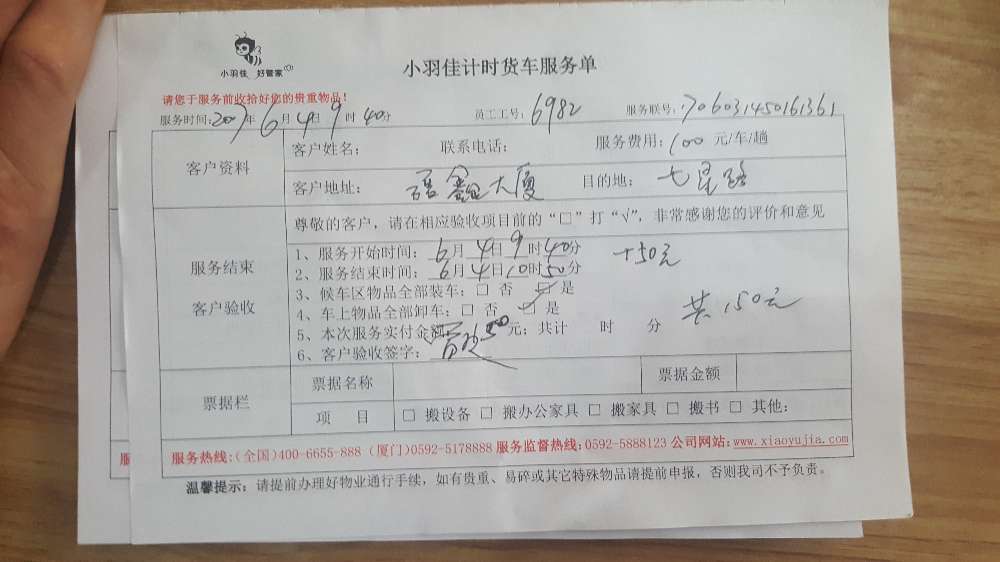 小羽佳 好管家
小羽佳计时货车服务单
请您于服务前收拾好您的贵重物品!
服务时间:2017年6月4日9时40分 员工工号:6982 服务联号:706031450161361
客户资料
客户姓名: 联系电话: 服务费用:100元/车/趟
客户地址: 鑫大厦 目的地: 七星路
服务结束
客户验收
尊敬的客户,请在相应验收项目前的“□”打“√”,非常感谢您的评价和意见
1、服务开始时间:6月4日9时40分 +50元
2、服务结束时间:6月4日10时50分
3、候车区物品全部装车:□ 否 ☑ 是
4、车上物品全部卸车:□ 否 ☑ 是 共150元
5、本次服务实付金额 50元;共计 时 分
6、客户验收签字:
票据栏
票据名称 票据金额
项 目 □ 搬设备 □ 搬办公家具 □ 搬家具 □ 搬书 □ 其他:
服务热线:(全国)400-6655-888 (厦门)0592-5178888 服务监督热线:0592-5888123 公司网站:www.xiaoyujia.com
温馨提示:请提前办理好物业通行手续,如有贵重、易碎或其它特殊物品请提前申报,否则我司不予负责。
服